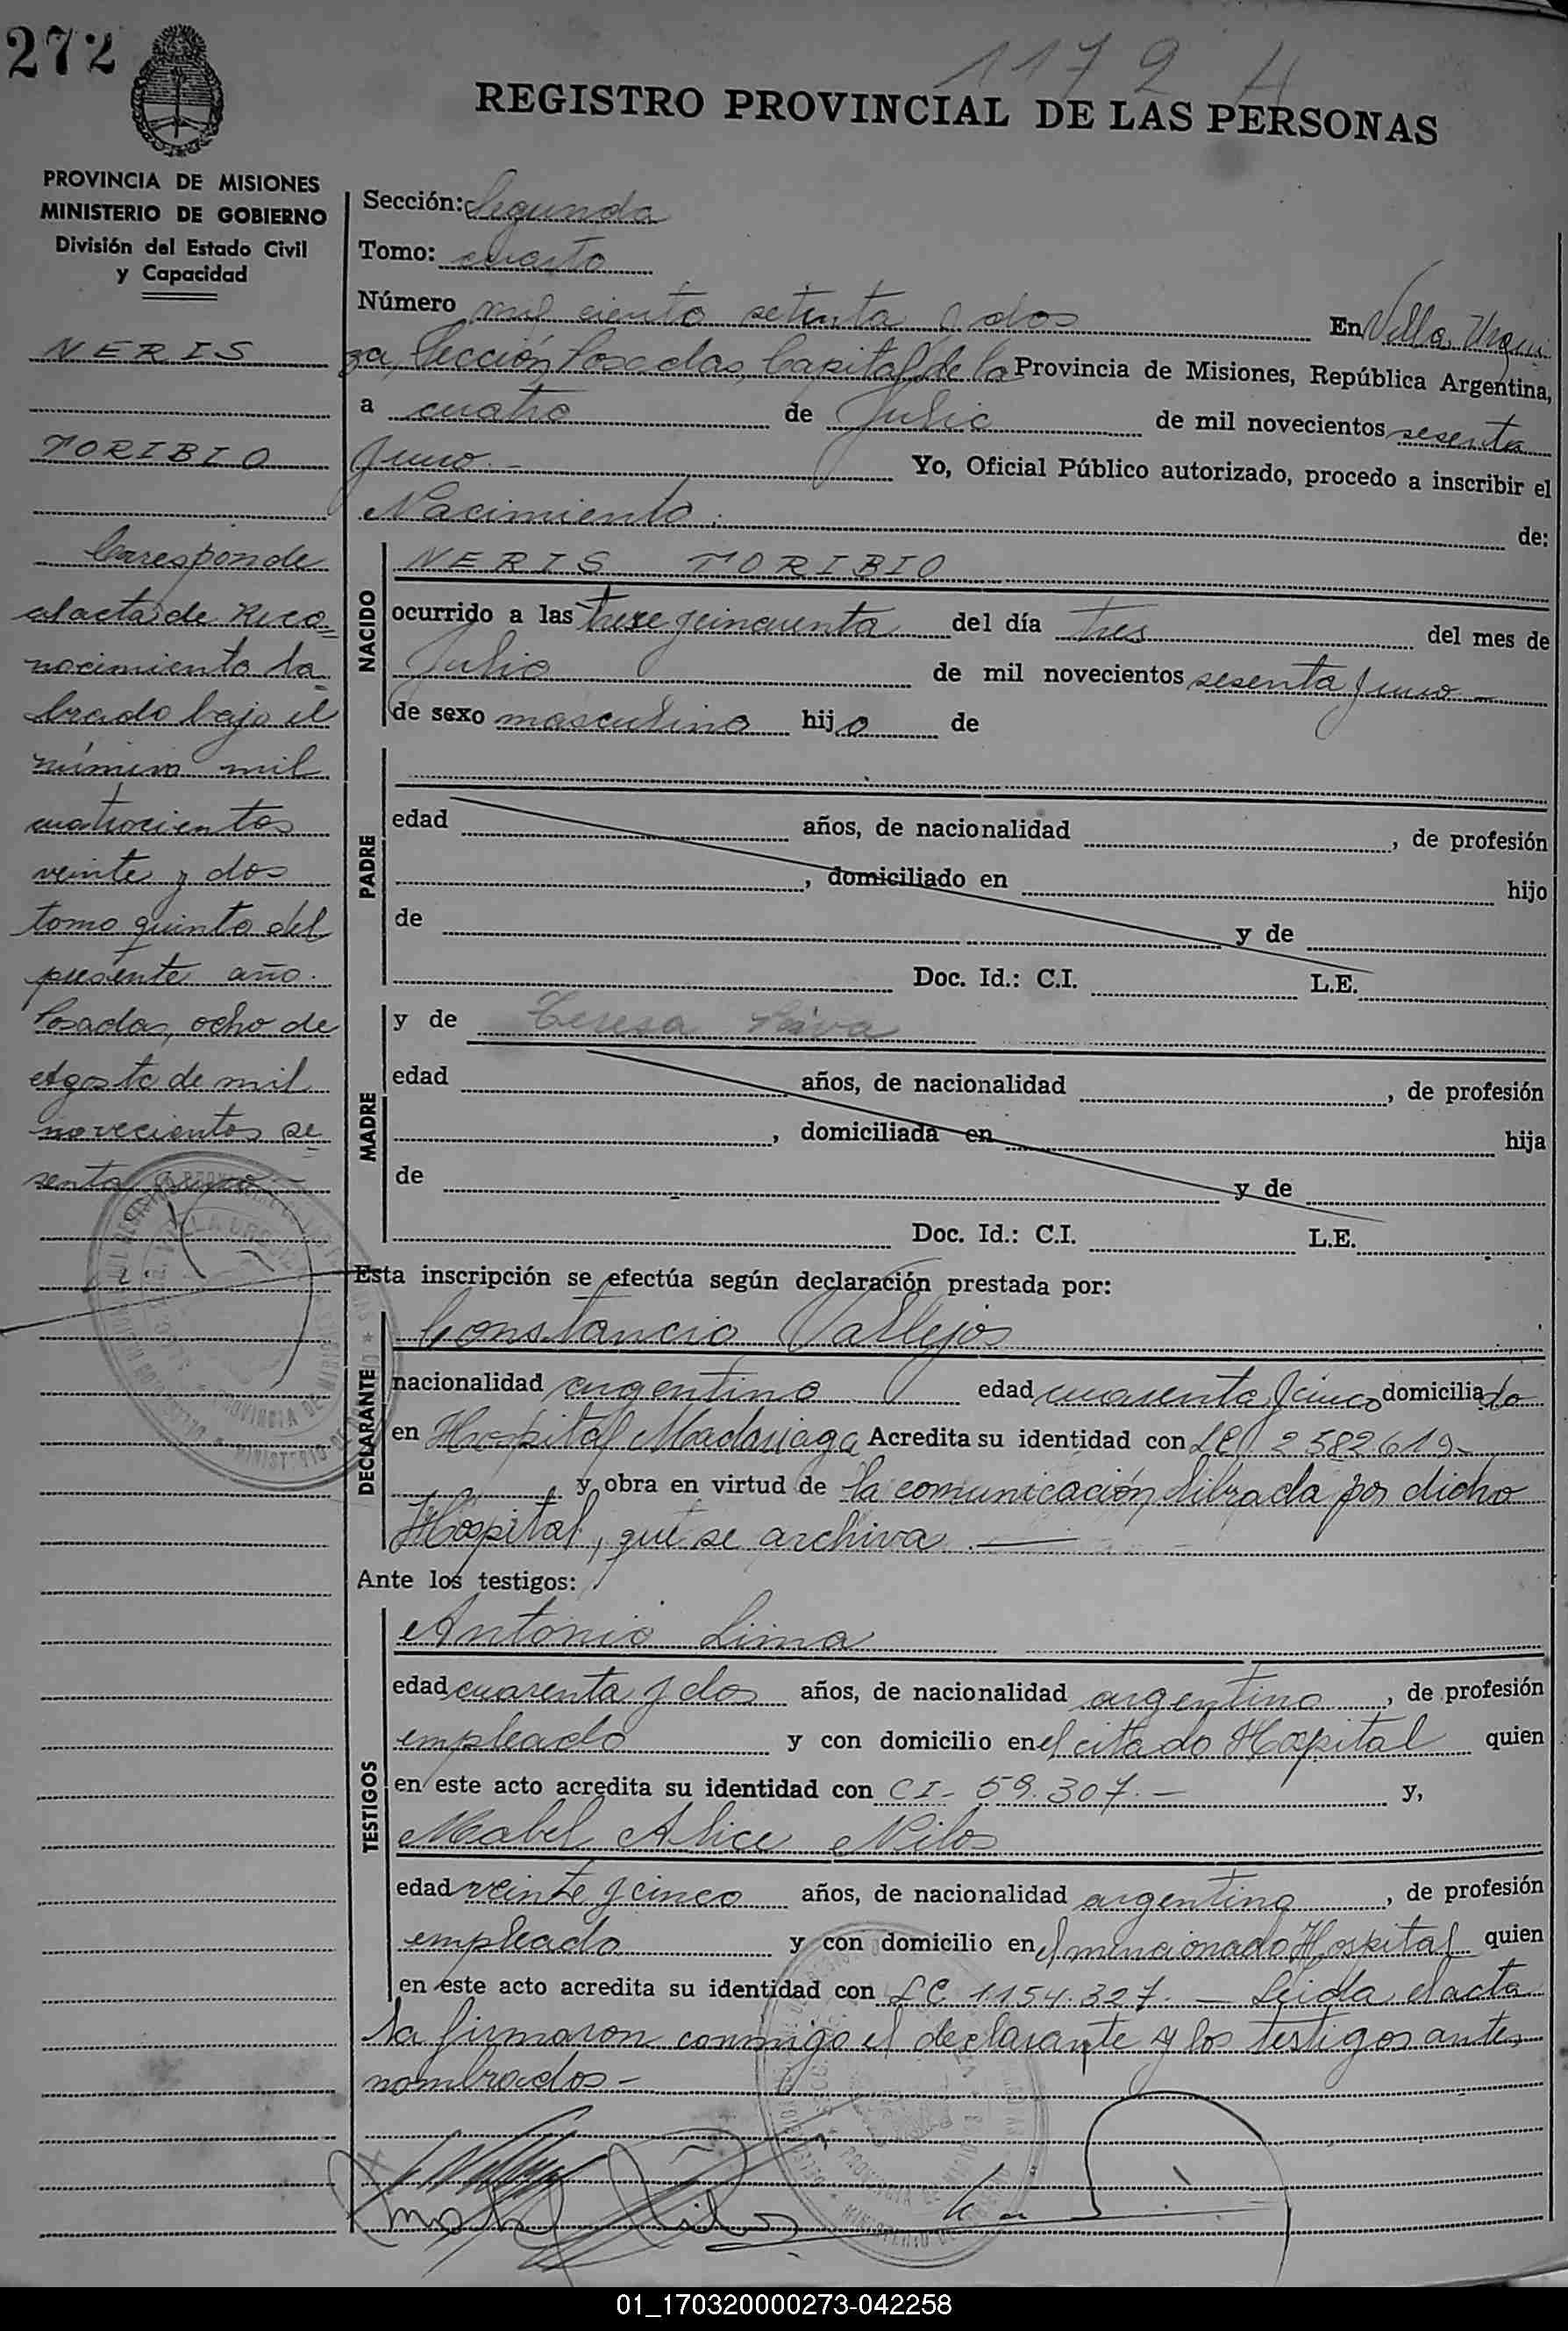 272
1172 H
REGISTRO PROVINCIAL DE LAS PERSONAS
PROVINCIA DE MISIONES
MINISTERIO DE GOBIERNO
División del Estado Civil
y Capacidad
NERIS
TORIBIO
Corresponde
al acta de Reco=
nocimiento la=
brado bajo el
número mil
cuatrocientos
veinte y dos
tomo quinto del
presente año.
Posadas, ocho de
Agosto de mil
novecientos se=
senta y uno.-
Sección: Segunda
Tomo: cuarto
Número mil ciento setenta y dos En Villa Urqui
za, Sección Posadas, Capital de la Provincia de Misiones, República Argentina,
a cuatro de Julio de mil novecientos sesenta
y uno.- Yo, Oficial Público autorizado, procedo a inscribir el
Nacimiento. de:
NACIDO
NERIS TORIBIO
ocurrido a las trece y cincuenta del día tres del mes de
Julio de mil novecientos sesenta y uno -
de sexo masculino hijo de
PADRE
edad años, de nacionalidad , de profesión
, domiciliado en hijo
de y de
Doc. Id.: C.I. L.E.
MADRE
y de Teresa
edad años, de nacionalidad , de profesión
, domiciliada en hija
de y de
Doc. Id.: C.I. L.E.
Esta inscripción se efectúa según declaración prestada por:
DECLARANTE
Constancio Vallejos
nacionalidad argentino edad cuarenta y cinco domiciliado
en Hospital Madariaga Acredita su identidad con LE 2582619-
y obra en virtud de la comunicación librada por dicho
Hospital, que se archiva. —
Ante los testigos:
TESTIGOS
Antonio Lima
edad cuarenta y dos años, de nacionalidad argentino , de profesión
empleado y con domicilio en el citado Hospital quien
en este acto acredita su identidad con CI- 59.307.- y,
Mabel Alice Nilos
edad veinte y cinco años, de nacionalidad argentina , de profesión
empleada y con domicilio en el mencionado Hospital quien
en este acto acredita su identidad con LC 1154.327. - Leida el acta
la firmaron conmigo el declarante y los testigos antes
nombrados -
01_170320000273-042258